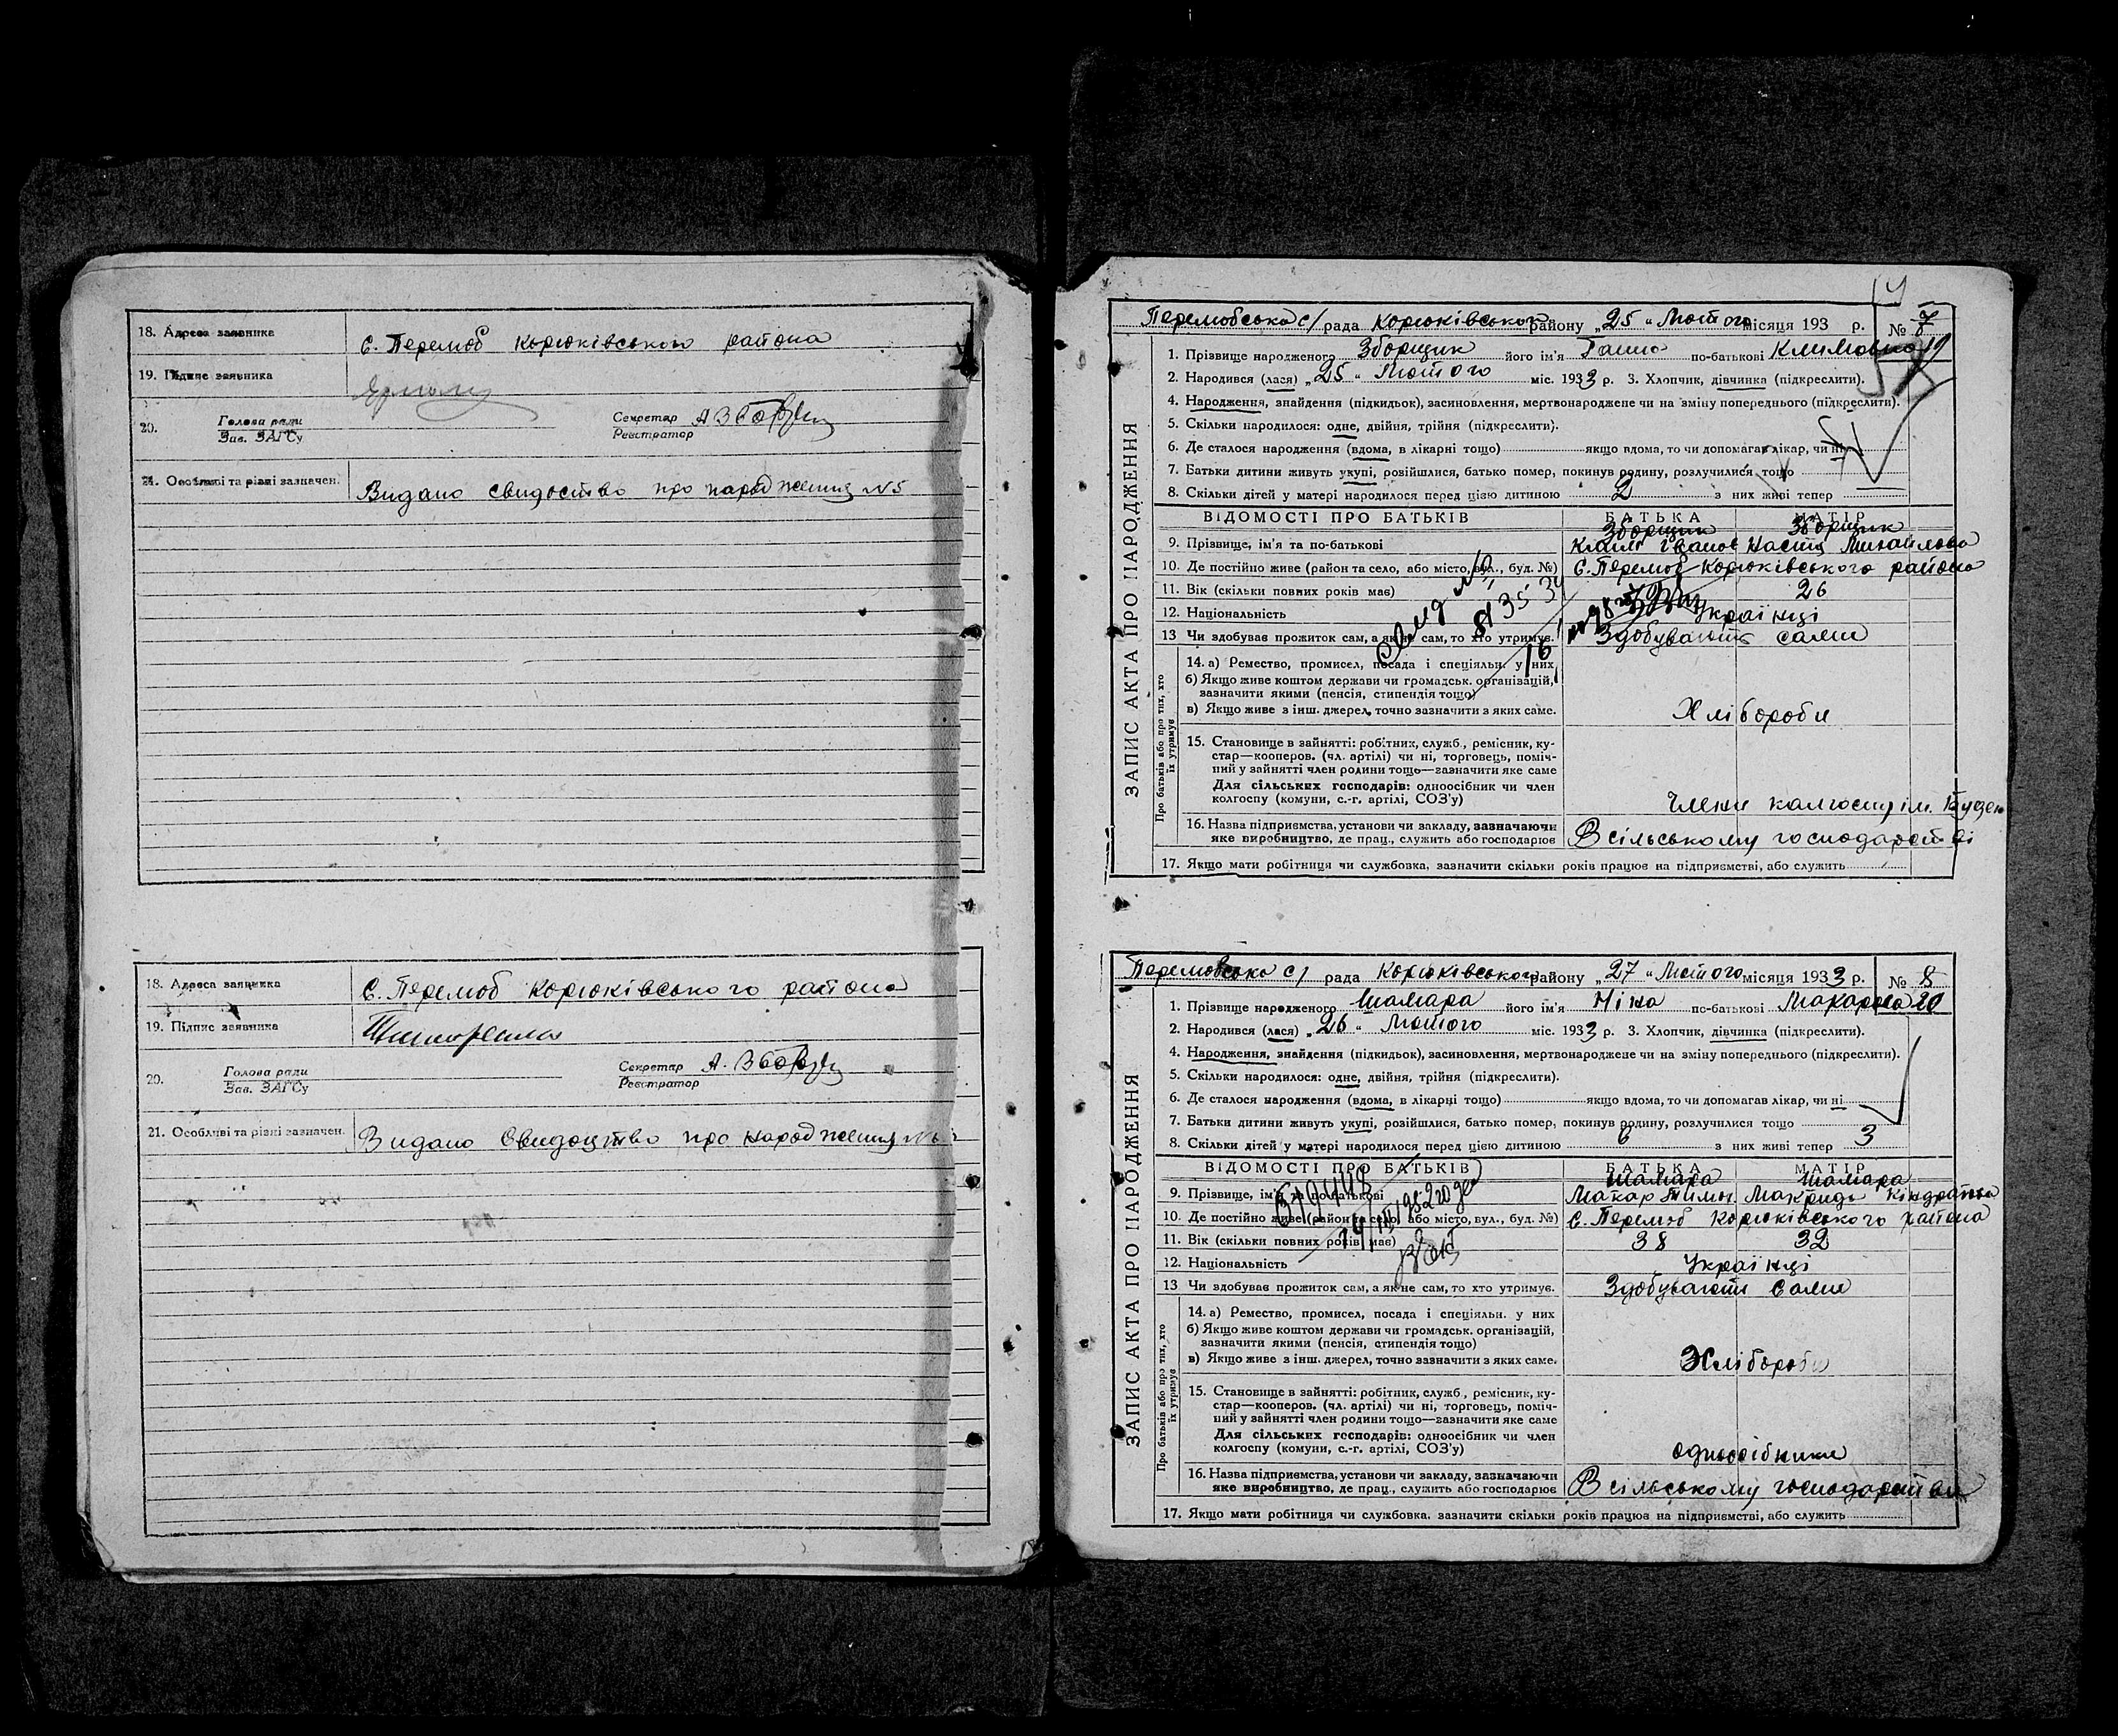 18. Адреса заявника с. Перелюб Корюківського района
19. Підпис заявника
20. Голова ради Секретар А Збарщ
Зав. ЗАГСу Реєстратор
21. Особливі та різні зазначен. Видано свидоство про народження №5
18. Адреса заявника С. Перелюб Корюківського района
19. Підпис заявника
20. Голова ради Секретар А.
Зав. ЗАГСу Реєстратор
21. Особливі та різні зазначен. Видано Свидоцтво про народження № 6
14
Перелюбська с/ рада Корюківського району „25“ Лютого місяця 193 р. № 7
19
ЗАПИС АКТА ПРО НАРОДЖЕННЯ
1. Прізвище народженого Зборщик його ім'я Ганна по-батькові Климовна
2. Народився (лася) „25“ Лютого міс. 1933 р. 3. Хлопчик, дівчинка (підкреслити).
4. Народження, знайдення (підкидьок), засиновлення, мертвонароджене чи на зміну попереднього (підкреслити).
5. Скільки народилося: одне, двійня, трійня (підкреслити).
6. Де сталося народження (вдома, в лікарні тощо) якщо вдома, то чи допомагав лікар, чи ні
7. Батьки дитини живуть укупі, розійшлися, батько помер, покинув родину, розлучилися тощо
8. Скільки дітей у матері народилося перед цією дитиною 2 з них живі тепер
ВІДОМОСТІ ПРО БАТЬКІВ БАТЬКА МАТІР
Зборщик Зборщик
9. Прізвище, ім'я та по-батькові Клим Іванов Настя Михайлова
10. Де постійно живе (район та село, або місто, вул., буд. №) С. Перелюб Корюківського района
11. Вік (скільки повних років має) 26
12. Національність Українці
13 Чи здобуває прожиток сам, а як не сам, то хто утримує. Здобувають сами
Про батьків або про тих, хто їх утримує
14. а) Ремество, промисел, посада і спеціяльн. у них
б) Якщо живе коштом держави чи громадськ. організацій,
зазначити якими (пенсія, стипендія тощо)
в) Якщо живе з інш. джерел, точно зазначити з яких саме. Хлібороби
15. Становище в зайнятті: робітник, служб., ремісник, ку-
стар—кооперов. (чл. артілі) чи ні, торговець, поміч-
ний у зайнятті член родини тощо—зазначити яке саме
Для сільських господарів: одноосібник чи член
колгоспу (комуни, с.-г. артілі, СОЗ'у) Члени колгоспу ім. Буден
16. Назва підприємства, установи чи закладу, зазначаючи
яке виробництво, де прац., служить або господарює В сільському господарстві
17. Якщо мати робітниця чи службовка, зазначити скільки років працює на підприємстві, або служить
Перелюбська с/ рада Корюківського району „27“ Лютого місяця 1933 р. № 8
20
ЗАПИС АКТА ПРО НАРОДЖЕННЯ
1. Прізвище народженого Шамара його ім'я Ніна по-батькові Макарова
2. Народився (лася) „26“ Лютого міс. 1933 р. 3. Хлопчик, дівчинка (підкреслити).
4. Народження, знайдення (підкидьок), засиновлення, мертвонароджене чи на зміну попереднього (підкреслити).
5. Скільки народилося: одне, двійня, трійня (підкреслити).
6. Де сталося народження (вдома, в лікарні тощо) якщо вдома, то чи допомагав лікар, чи ні
7. Батьки дитини живуть укупі, розійшлися, батько помер, покинув родину, розлучилися тощо
8. Скільки дітей у матері народилося перед цією дитиною 6 з них живі тепер 3
ВІДОМОСТІ ПРО БАТЬКІВ БАТЬКА МАТІР
Шамара Шамара
9. Прізвище, ім'я та по-батькові Макар Тимох. Макрида Кіндратова
10. Де постійно живе (район та село, або місто, вул., буд. №) С. Перелюб Корюківського района
11. Вік (скільки повних років має) 38 32
12. Національність Українці
13 Чи здобуває прожиток сам, а як не сам, то хто утримує. Здобувають Сами
Про батьків або про тих, хто їх утримує
14. а) Ремество, промисел, посада і спеціяльн. у них
б) Якщо живе коштом держави чи громадськ. організацій,
зазначити якими (пенсія, стипендія тощо)
в) Якщо живе з інш. джерел, точно зазначити з яких саме. Хлібороби
15. Становище в зайнятті: робітник, служб., ремісник, ку-
стар—кооперов. (чл. артілі) чи ні, торговець, поміч-
ний у зайнятті член родини тощо—зазначити яке саме
Для сільських господарів: одноосібник чи член
колгоспу (комуни, с.-г. артілі, СОЗ'у) одноосібники
16. Назва підприємства, установи чи закладу, зазначаючи
яке виробництво, де прац., служить або господарює В сільському господарстви
17. Якщо мати робітниця чи службовка, зазначити скільки років працює на підприємстві, або служить